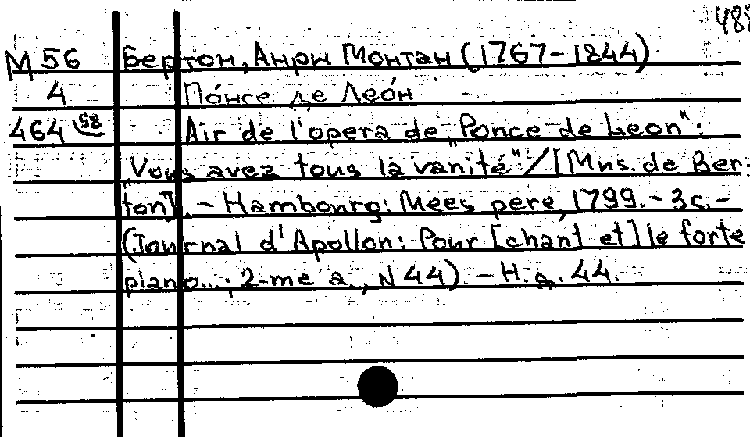 48
М 56 Бертон, Анри Монтан (1767-1844)
4 Понсе де Леóн
464 Air de l'opera de „Ponce de Leon":
„Vous avez tous la vanité"/[Mus. de Ber-
ton]. - Hambourg: Mees pere, 1799. - 3 с. -
(Journal d'Apollon: Pour [chant et] le forte
piano...; 2-me a., N 44). - Н. д. 44.